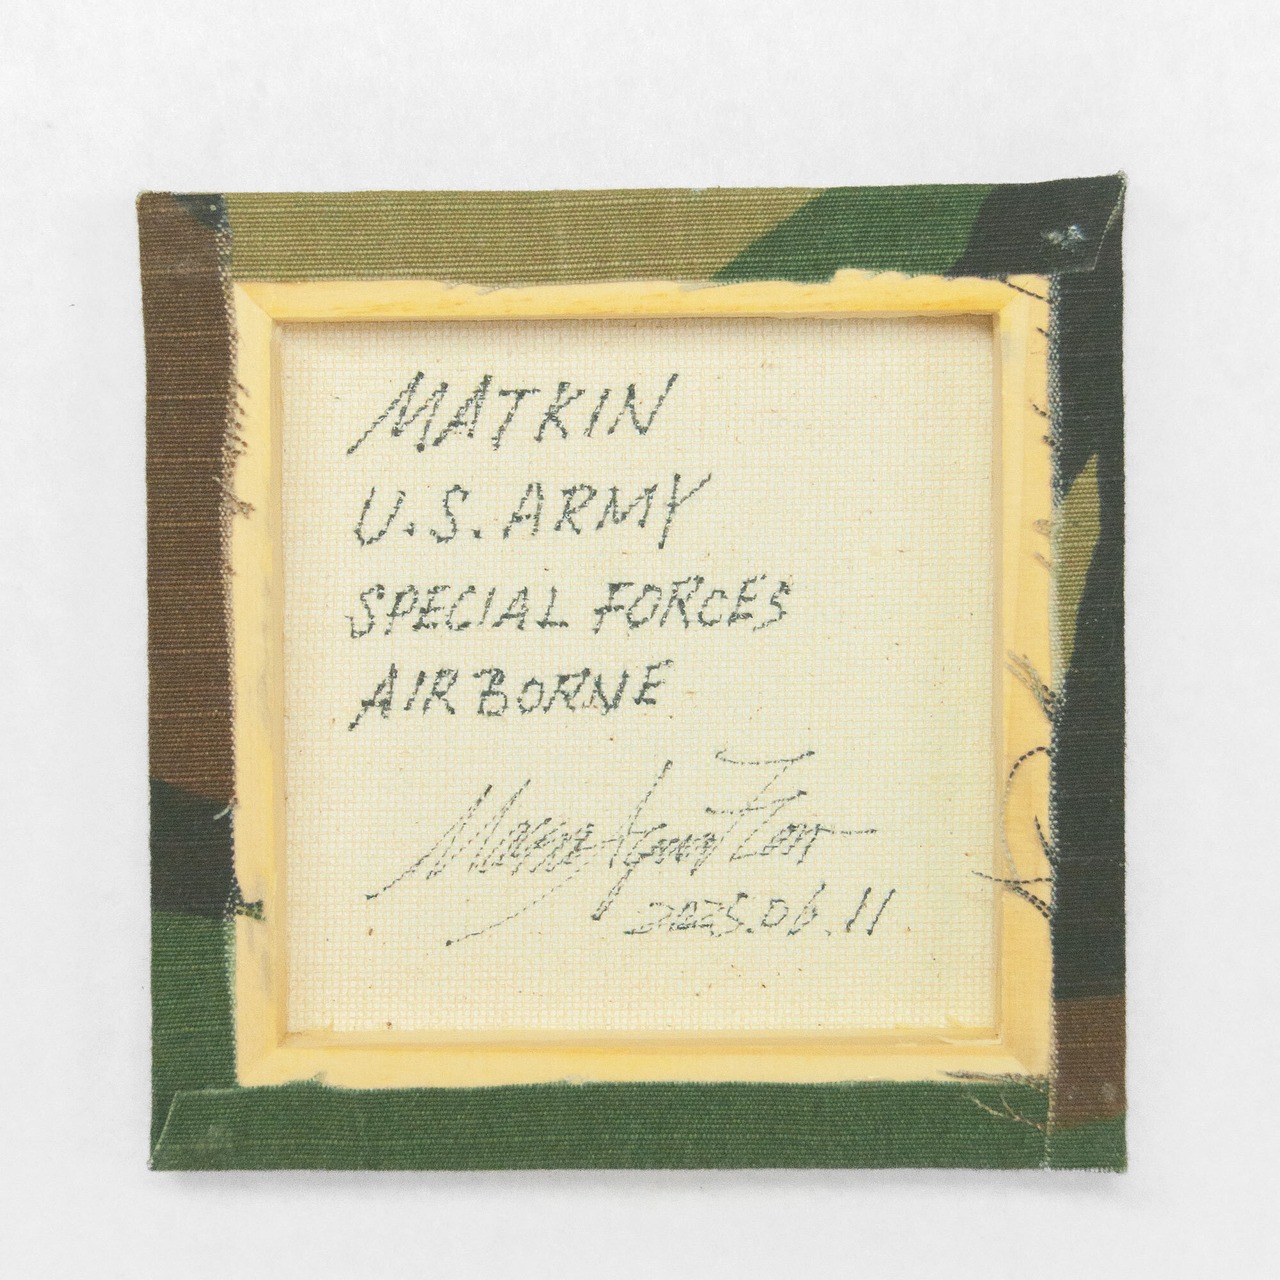 MATKIN
U.S. ARMY
SPECIAL FORCES
AIRBORNE
2025.06.11